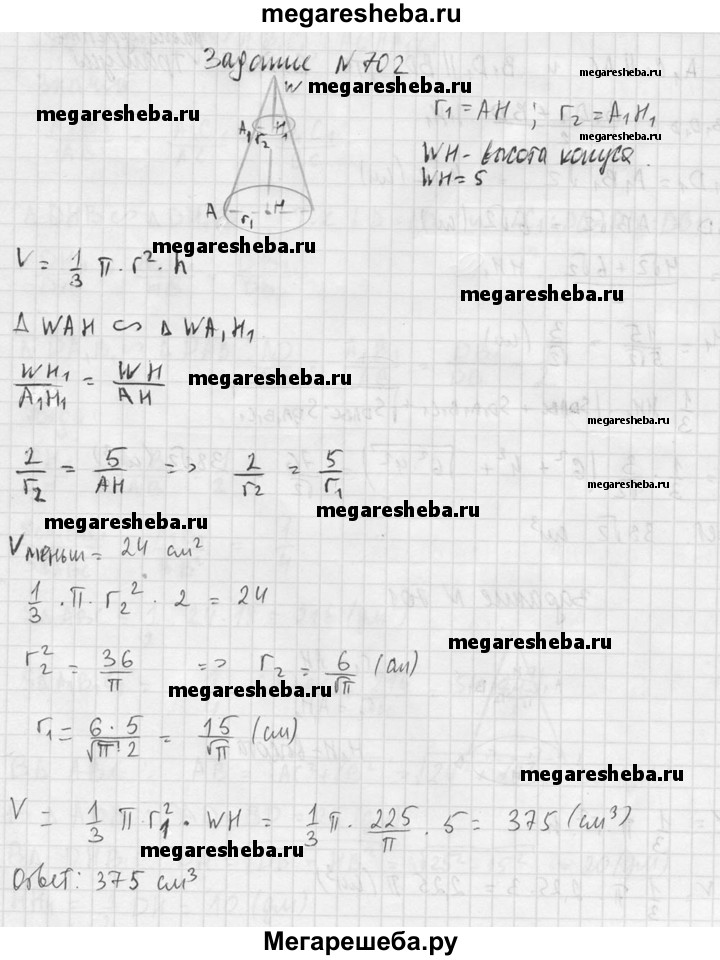 megaresheba.ru
Задание N 702
W megaresheba.ru megaresheba.ru
A₁ r₂ H₁ r₁ = AH; r₂ = A₁H₁
megaresheba.ru megaresheba.ru
WH - высота конуса.
WH = 5
A r₁ H megaresheba.ru
megaresheba.ru
V = 1/3 π · r² · h
megaresheba.ru
Δ WAH ∽ Δ WA₁H₁
WH₁/A₁H₁ = WH/AH megaresheba.ru
megaresheba.ru
2/r₂ = 5/AH => 2/r₂ = 5/r₁ megaresheba.ru
megaresheba.ru megaresheba.ru
Vменьш = 24 см²
1/3 · π · r₂² · 2 = 24
megaresheba.ru
r₂² = 36/π => r₂ = 6/√π (см)
megaresheba.ru
r₁ = 6·5/√π·2 = 15/√π (см)
megaresheba.ru
V = 1/3 π · r₁² · WH = 1/3 π · 225/π · 5 = 375 (см³)
megaresheba.ru
Ответ: 375 см³
Мегарешеба.ру